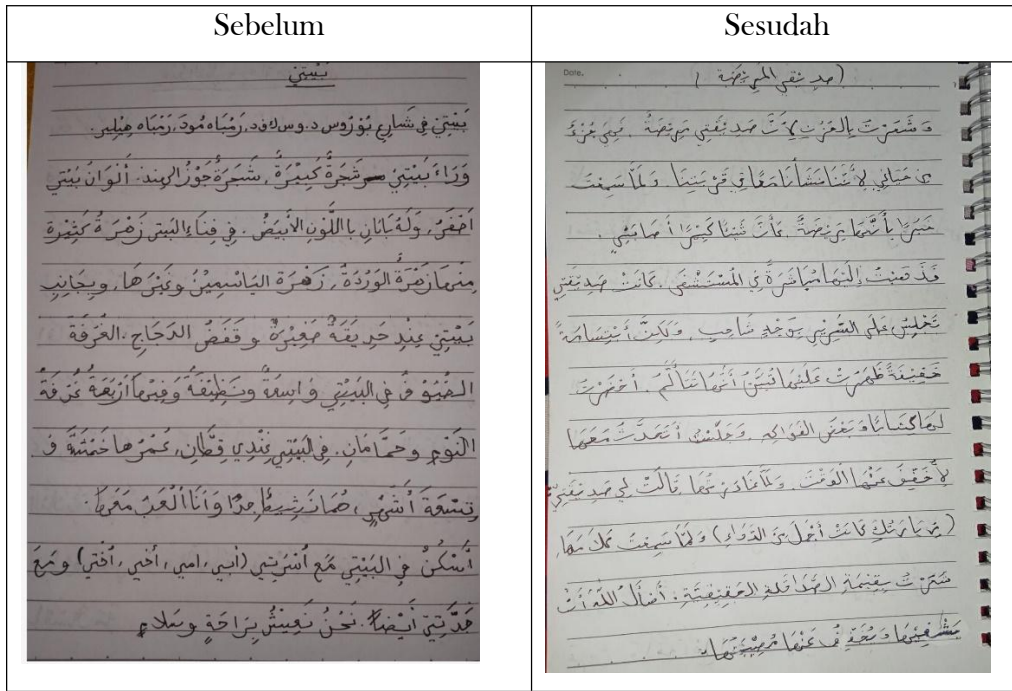 Sebelum
بَيْتِيْ
بَيْتِيْ فِي شَارِعِ بُوْرُوس د. وس لاود, رَمْبَاه مُودَ, رَمْبَاه هِيْلِير.
وَرَاءَ بَيْتِيْ شَجَرَةٌ كَبِيْرَةٌ, شَجَرَةُ جَوْزُ الهِند. أَلْوَانُ بَيْتِي
أَخْضَرُ, وَلَهُ بَابَانِ بِااللَّوْنِ الأَبْيَضُ. فِي فِنَاءِ البَيْتِ زَهْرَةُ كَثِيْرَة
مِنهَا زَهْرَةُ الْوَرْدَةُ, زَهْرَة اليَاسْمِيْنُ وغَيْرَهَا, وبِجَانِبِ
بَيْتِيْ عِنْدِ حَدِيقَةٌ صَغِيْرَةٌ و قَفَصُ الدَجَاجِ. الغُرْفَة
الضُيُوْفُ فِي البَيْتِي وَاسِعَةٌ ونَظِيْفَةٌ وَفِيْهَا أَرْبَعَةُ غُرْفَةُ
النَوْمِ وحَمَّامَانِ. فِي البَيْتِي عِنْدِي قِطَّانِ, عُمْرُهَا خَمْسَةٌ وَ
تِسْعَةَ أَشْهُرٍ, هُمَا نَشِيْطًا جِدًّا وَأَنَا أَلْعَبُ مَعَهَا.
أَسْكُنُ فِي البَيْتِي مَعَ أُسْرَتِي (أبي, امي, أخي, أختي) ومَعَ
جَدَّتِيْ أَيْضًا. نَحْنُ نَعِيْشُ بِرَاحَةٍ وسَلَاِم
Sesudah
Date.
(صديقتي المريضة)
وَشَعَرْتُ بِالحُزْنِ لِأَنَّ صَدِيْقَتِي مَرِيْضَةٌ. فَهِيَ جُزْءٌ
مِن حَيَاتِي لِأَنَّنَا نَشَأْنَا مَعًا فِي قَرْيَتِنَا. وَلَمَّا سَمِعْتُ
خَبَرًا بِأَنَّهَا مَرِيْضَةٌ كَأَنَّ شَيْئًا كَبِيْرًا أَصَابَنِي.
فَذَهَبْتُ إِلَيْهَا مُبَاشَرَةً فِي المُسْتَشْفَى. كَانَتْ صَدِيْقَتِي
تَجْلِسُ عَلَى السَّرِيْرِ بِوَجْهٍ شَاحِبٍ. وَلَكِنَّ أَبْتِسَامَةً
خَفِيْفَةً ظَهَرَتْ عَلَيْهَا تُبَيِّنُ أَنَّهَا تَتَأَلَّمُ. أَحْضَرْتُ
لَهَا كِتَابًا وَبَعْضَ الفَوَاكِهِ. وَجَلَسْتُ أَتَحَدَّثُ مَعَهَا
لِأُخَفِّفَ عَنْهَا الْوَقْتَ. وَلَمَّا غَادَرْتُهَا قَالَتْ لِي صَدِيْقَتِي
(زِيَارَتُكِ كَانَتْ أَجْمَلَ مِنَ الدَّوَاءِ) وَلَمَّا سَمِعْتُ كَلَامَهَا,
شَعَرْتُ بِقِيْمَةِ الصَّدَاقَةِ الحَقِيْقِيَّةِ. أَسْأَلُ اللّهَ أَنْ
يَشْفِيَهَا وَيُخَفِّفُ عَنْهَا مُصِيْبَتَهَا.